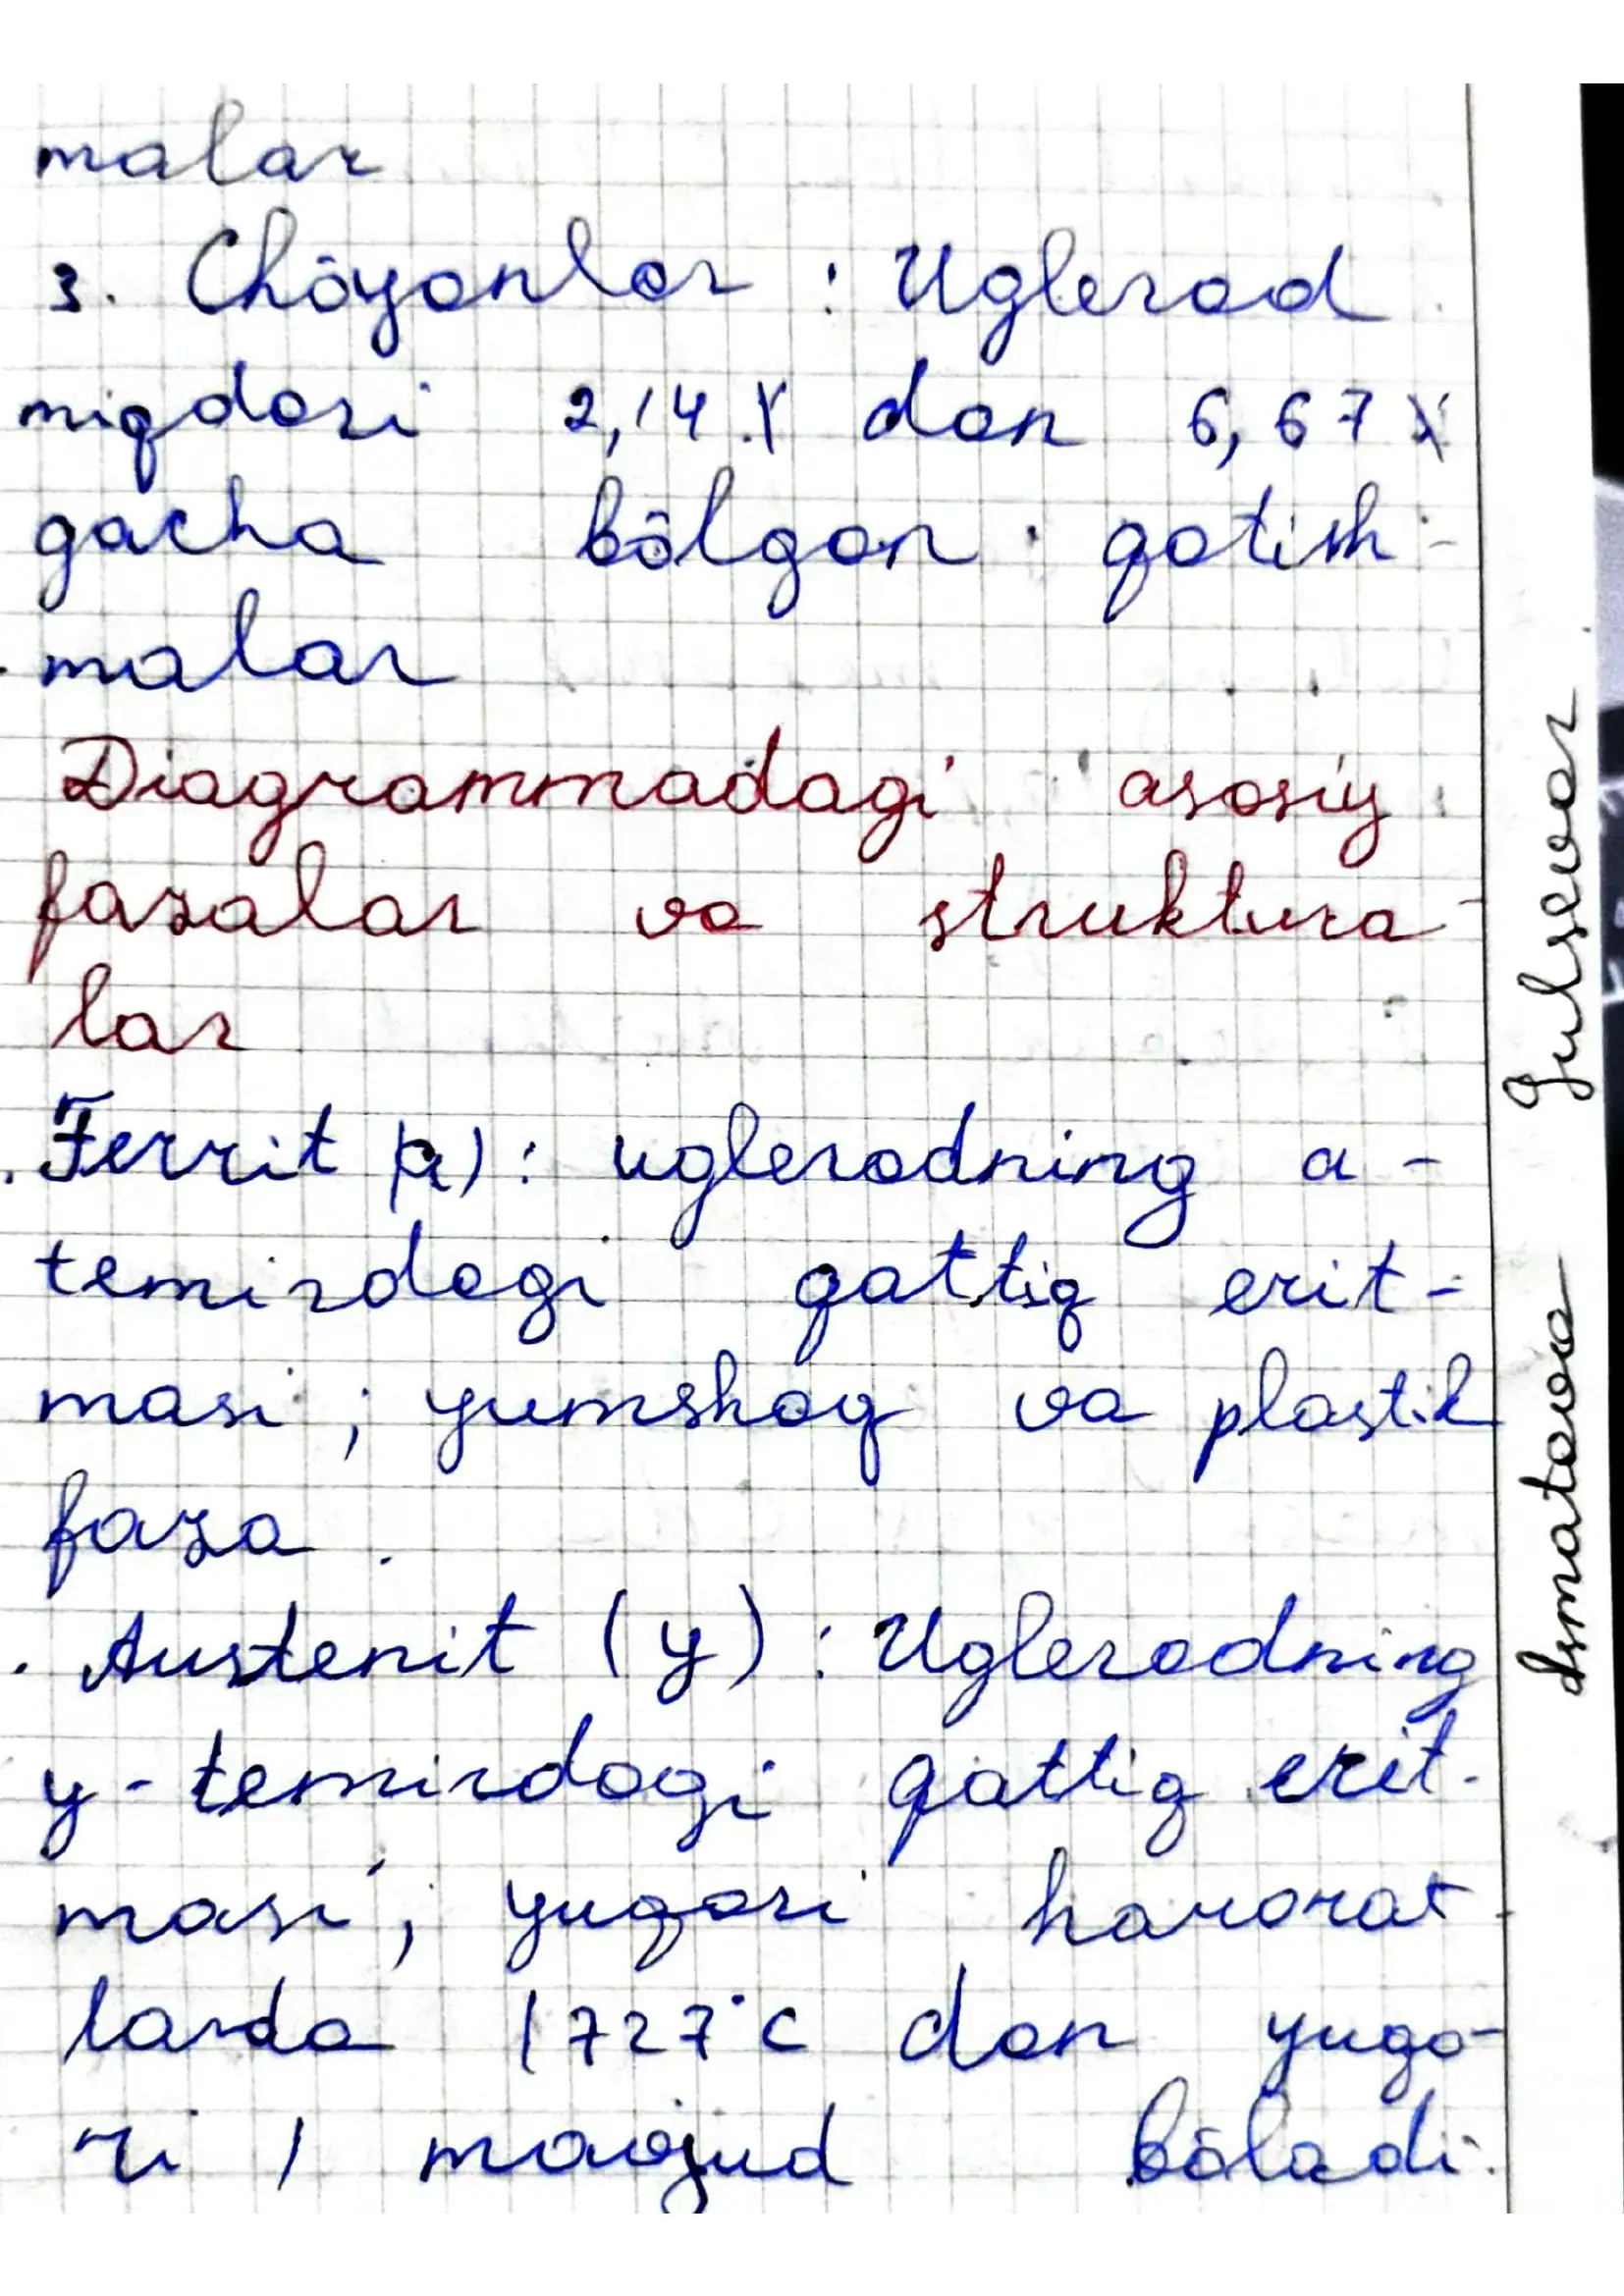 malar
3. Chōyanlar : Uglerod
miqdari 2,14 % dan 6,67 %
gacha bōlgan qotish-
malar
Diagrammadagi asosiy
fazalar va struktura-
lar
. Ferrit (a) : uglerodning a -
temirdagi qattiq erit-
masi ; yumshoq va plastik
faza .
. Austenit (y) : Uglerodning
y - temirdagi qattiq erit-
masi ; yuqori harorat
larda (727°C dan yuqo-
ri ) mavjud bōladi.
Ismatova Gulsevar